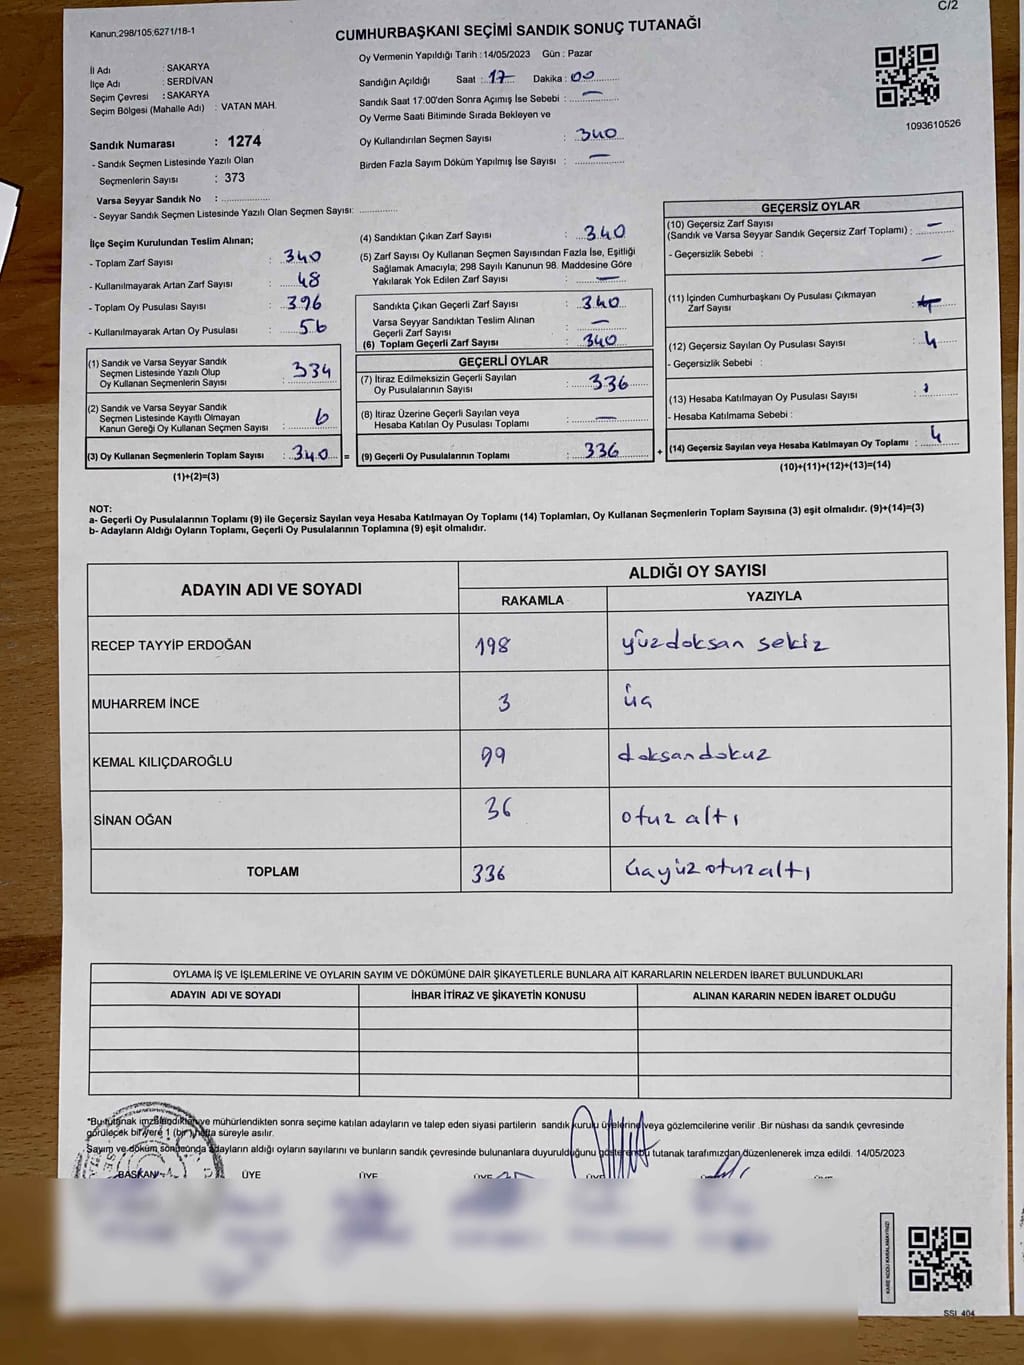 C/2
Kanun,298/105,6271/18-1
CUMHURBAŞKANI SEÇİMİ SANDIK SONUÇ TUTANAĞI
Oy Vermenin Yapıldığı Tarih : 14/05/2023 Gün : Pazar
İl Adı : SAKARYA
İlçe Adı : SERDİVAN
Seçim Çevresi : SAKARYA
Seçim Bölgesi (Mahalle Adı) : VATAN MAH.
Sandığın Açıldığı Saat : 17 Dakika : 00
Sandık Saat 17:00'den Sonra Açımış İse Sebebi : —
Oy Verme Saati Bitiminde Sırada Bekleyen ve
Oy Kullandırılan Seçmen Sayısı : 340
Birden Fazla Sayım Döküm Yapılmış İse Sayısı : —
1093610526
Sandık Numarası : 1274
- Sandık Seçmen Listesinde Yazılı Olan
Seçmenlerin Sayısı : 373
Varsa Seyyar Sandık No :
- Seyyar Sandık Seçmen Listesinde Yazılı Olan Seçmen Sayısı:
İlçe Seçim Kurulundan Teslim Alınan;
- Toplam Zarf Sayısı : 340
- Kullanılmayarak Artan Zarf Sayısı : 48
- Toplam Oy Pusulası Sayısı : 396
- Kullanılmayarak Artan Oy Pusulası : 56
(1) Sandık ve Varsa Seyyar Sandık
Seçmen Listesinde Yazılı Olup
Oy Kullanan Seçmenlerin Sayısı : 334
(2) Sandık ve Varsa Seyyar Sandık
Seçmen Listesinde Kayıtlı Olmayan
Kanun Gereği Oy Kullanan Seçmen Sayısı : 6
(3) Oy Kullanan Seçmenlerin Toplam Sayısı : 340 =
(1)+(2)=(3)
(4) Sandıktan Çıkan Zarf Sayısı : 340
(5) Zarf Sayısı Oy Kullanan Seçmen Sayısından Fazla İse, Eşitliği
Sağlamak Amacıyla; 298 Sayılı Kanunun 98. Maddesine Göre
Yakılarak Yok Edilen Zarf Sayısı : —
Sandıkta Çıkan Geçerli Zarf Sayısı : 340
Varsa Seyyar Sandıktan Teslim Alınan
Geçerli Zarf Sayısı : —
(6) Toplam Geçerli Zarf Sayısı : 340
GEÇERLİ OYLAR
(7) İtiraz Edilmeksizin Geçerli Sayılan
Oy Pusulalarının Sayısı : 336
(8) İtiraz Üzerine Geçerli Sayılan veya
Hesaba Katılan Oy Pusulası Toplamı : —
(9) Geçerli Oy Pusulalarının Toplamı : 336 +
GEÇERSİZ OYLAR
(10) Geçersiz Zarf Sayısı
(Sandık ve Varsa Seyyar Sandık Geçersiz Zarf Toplamı) : —
- Geçersizlik Sebebi : —
(11) İçinden Cumhurbaşkanı Oy Pusulası Çıkmayan
Zarf Sayısı :
(12) Geçersiz Sayılan Oy Pusulası Sayısı : 4
- Geçersizlik Sebebi :
(13) Hesaba Katılmayan Oy Pusulası Sayısı :
- Hesaba Katılmama Sebebi :
(14) Geçersiz Sayılan veya Hesaba Katılmayan Oy Toplamı : 4
(10)+(11)+(12)+(13)=(14)
NOT:
a- Geçerli Oy Pusulalarının Toplamı (9) ile Geçersiz Sayılan veya Hesaba Katılmayan Oy Toplamı (14) Toplamları, Oy Kullanan Seçmenlerin Toplam Sayısına (3) eşit olmalıdır. (9)+(14)=(3)
b- Adayların Aldığı Oyların Toplamı, Geçerli Oy Pusulalarının Toplamına (9) eşit olmalıdır.
ADAYIN ADI VE SOYADI ALDIĞI OY SAYISI
RAKAMLA YAZIYLA
RECEP TAYYİP ERDOĞAN 198 yüzdoksan sekiz
MUHARREM İNCE 3 üç
KEMAL KILIÇDAROĞLU 99 doksandokuz
SİNAN OĞAN 36 otuz altı
TOPLAM 336 üçyüz otuzaltı
OYLAMA İŞ VE İŞLEMLERİNE VE OYLARIN SAYIM VE DÖKÜMÜNE DAİR ŞİKAYETLERLE BUNLARA AİT KARARLARIN NELERDEN İBARET BULUNDUKLARI
ADAYIN ADI VE SOYADI İHBAR İTİRAZ VE ŞİKAYETİN KONUSU ALINAN KARARIN NEDEN İBARET OLDUĞU
*Bu tutanak imzalandıktan ve mühürlendikten sonra seçime katılan adayların ve talep eden siyasi partilerin sandık kurulu üyelerine veya gözlemcilerine verilir .Bir nüshası da sandık çevresinde
görülecek bir yere 1 (bir) hafta süreyle asılır.
Sayım ve döküm sonucunda adayların aldığı oyların sayılarını ve bunların sandık çevresinde bulunanlara duyurulduğunu gösteren bu tutanak tarafımızdan düzenlenerek imza edildi. 14/05/2023
BAŞKAN ÜYE ÜYE ÜYE ÜYE
KARE KODU KARALAMAYINIZ!
SSI 404